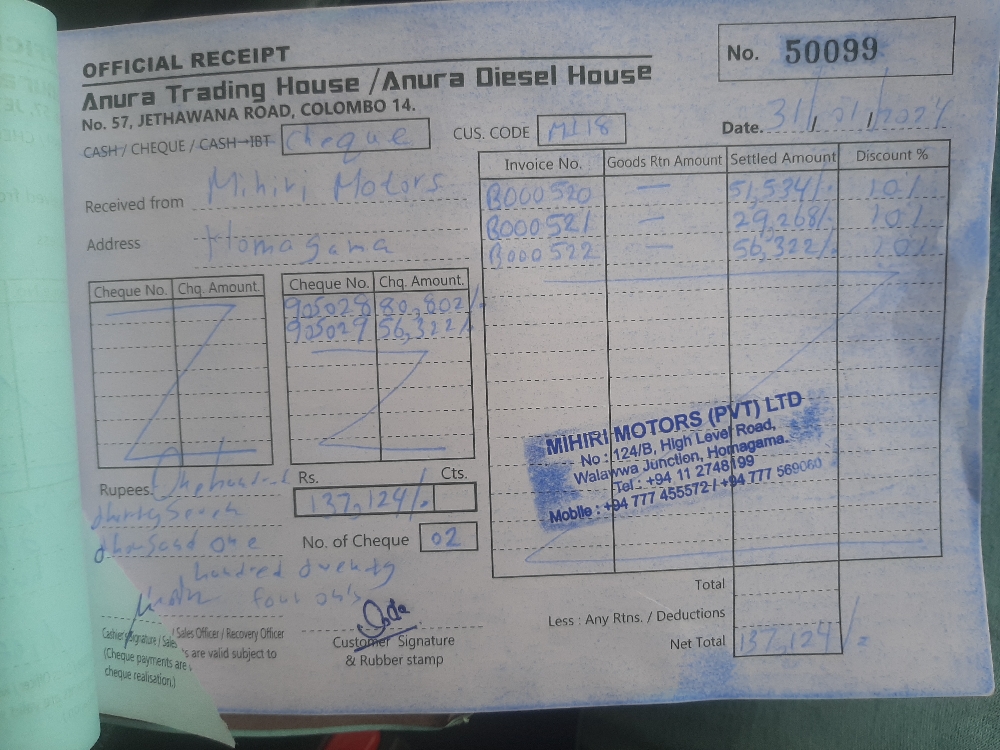 OFFICIAL RECEIPT
No. 50099
Anura Trading House / Anura Diesel House
No. 57, JETHAWANA ROAD, COLOMBO 14.
CASH / CHEQUE / CASH IBT Cheque
CUS. CODE MI 18
Date. 31/01/2024
Received from Mihiri Motors
Address Homagama
Invoice No. Goods Rtn Amount Settled Amount Discount %
B000520 — 51,534/- 10%
B000521 — 29,268/- 10%
B000522 — 56,322/- 10%
Cheque No. Chq. Amount. Cheque No. Chq. Amount.
905028 80,802/-
905029 56,322/-
MIHIRI MOTORS (PVT) LTD
No : 124/B, High Level Road,
Walawwa Junction, Homagama.
Tel : +94 11 2748199
Mobile : +94 777 455572 / +94 777 569060
Rupees. One hundred
thirty seven
thousand one
hundred twenty
four only
Rs. Cts.
137,124/-
No. of Cheque 02
Cashier Signature / Sales / Sales Officer / Recovery Officer
(Cheque payments are valid subject to
cheque realisation.)
Customer Signature
& Rubber stamp
Total
Less : Any Rtns. / Deductions
Net Total 137,124/=